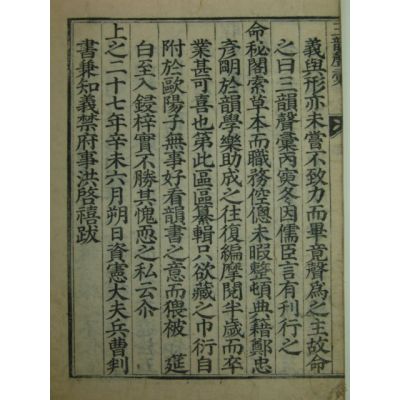 三韻聲彙
義與形亦未嘗不致力而畢竟聲爲之主故命
之曰三韻聲彙丙寅冬因儒臣言有刊行之
命秘閣索草本而職務倥偬未暇整頓典籍鄭忠
彦明於韻學樂助成之往復編摩閱半歲而卒
業甚可喜也第此區區纂輯只欲藏之巾衍自
附於歐陽子無事好看韻書之意而猥被 筵
白至入鋟梓實不勝其愧恧之私云尒
上之二十七年辛未六月朔日資憲大夫兵曹判
書兼知義禁府事洪啓禧跋